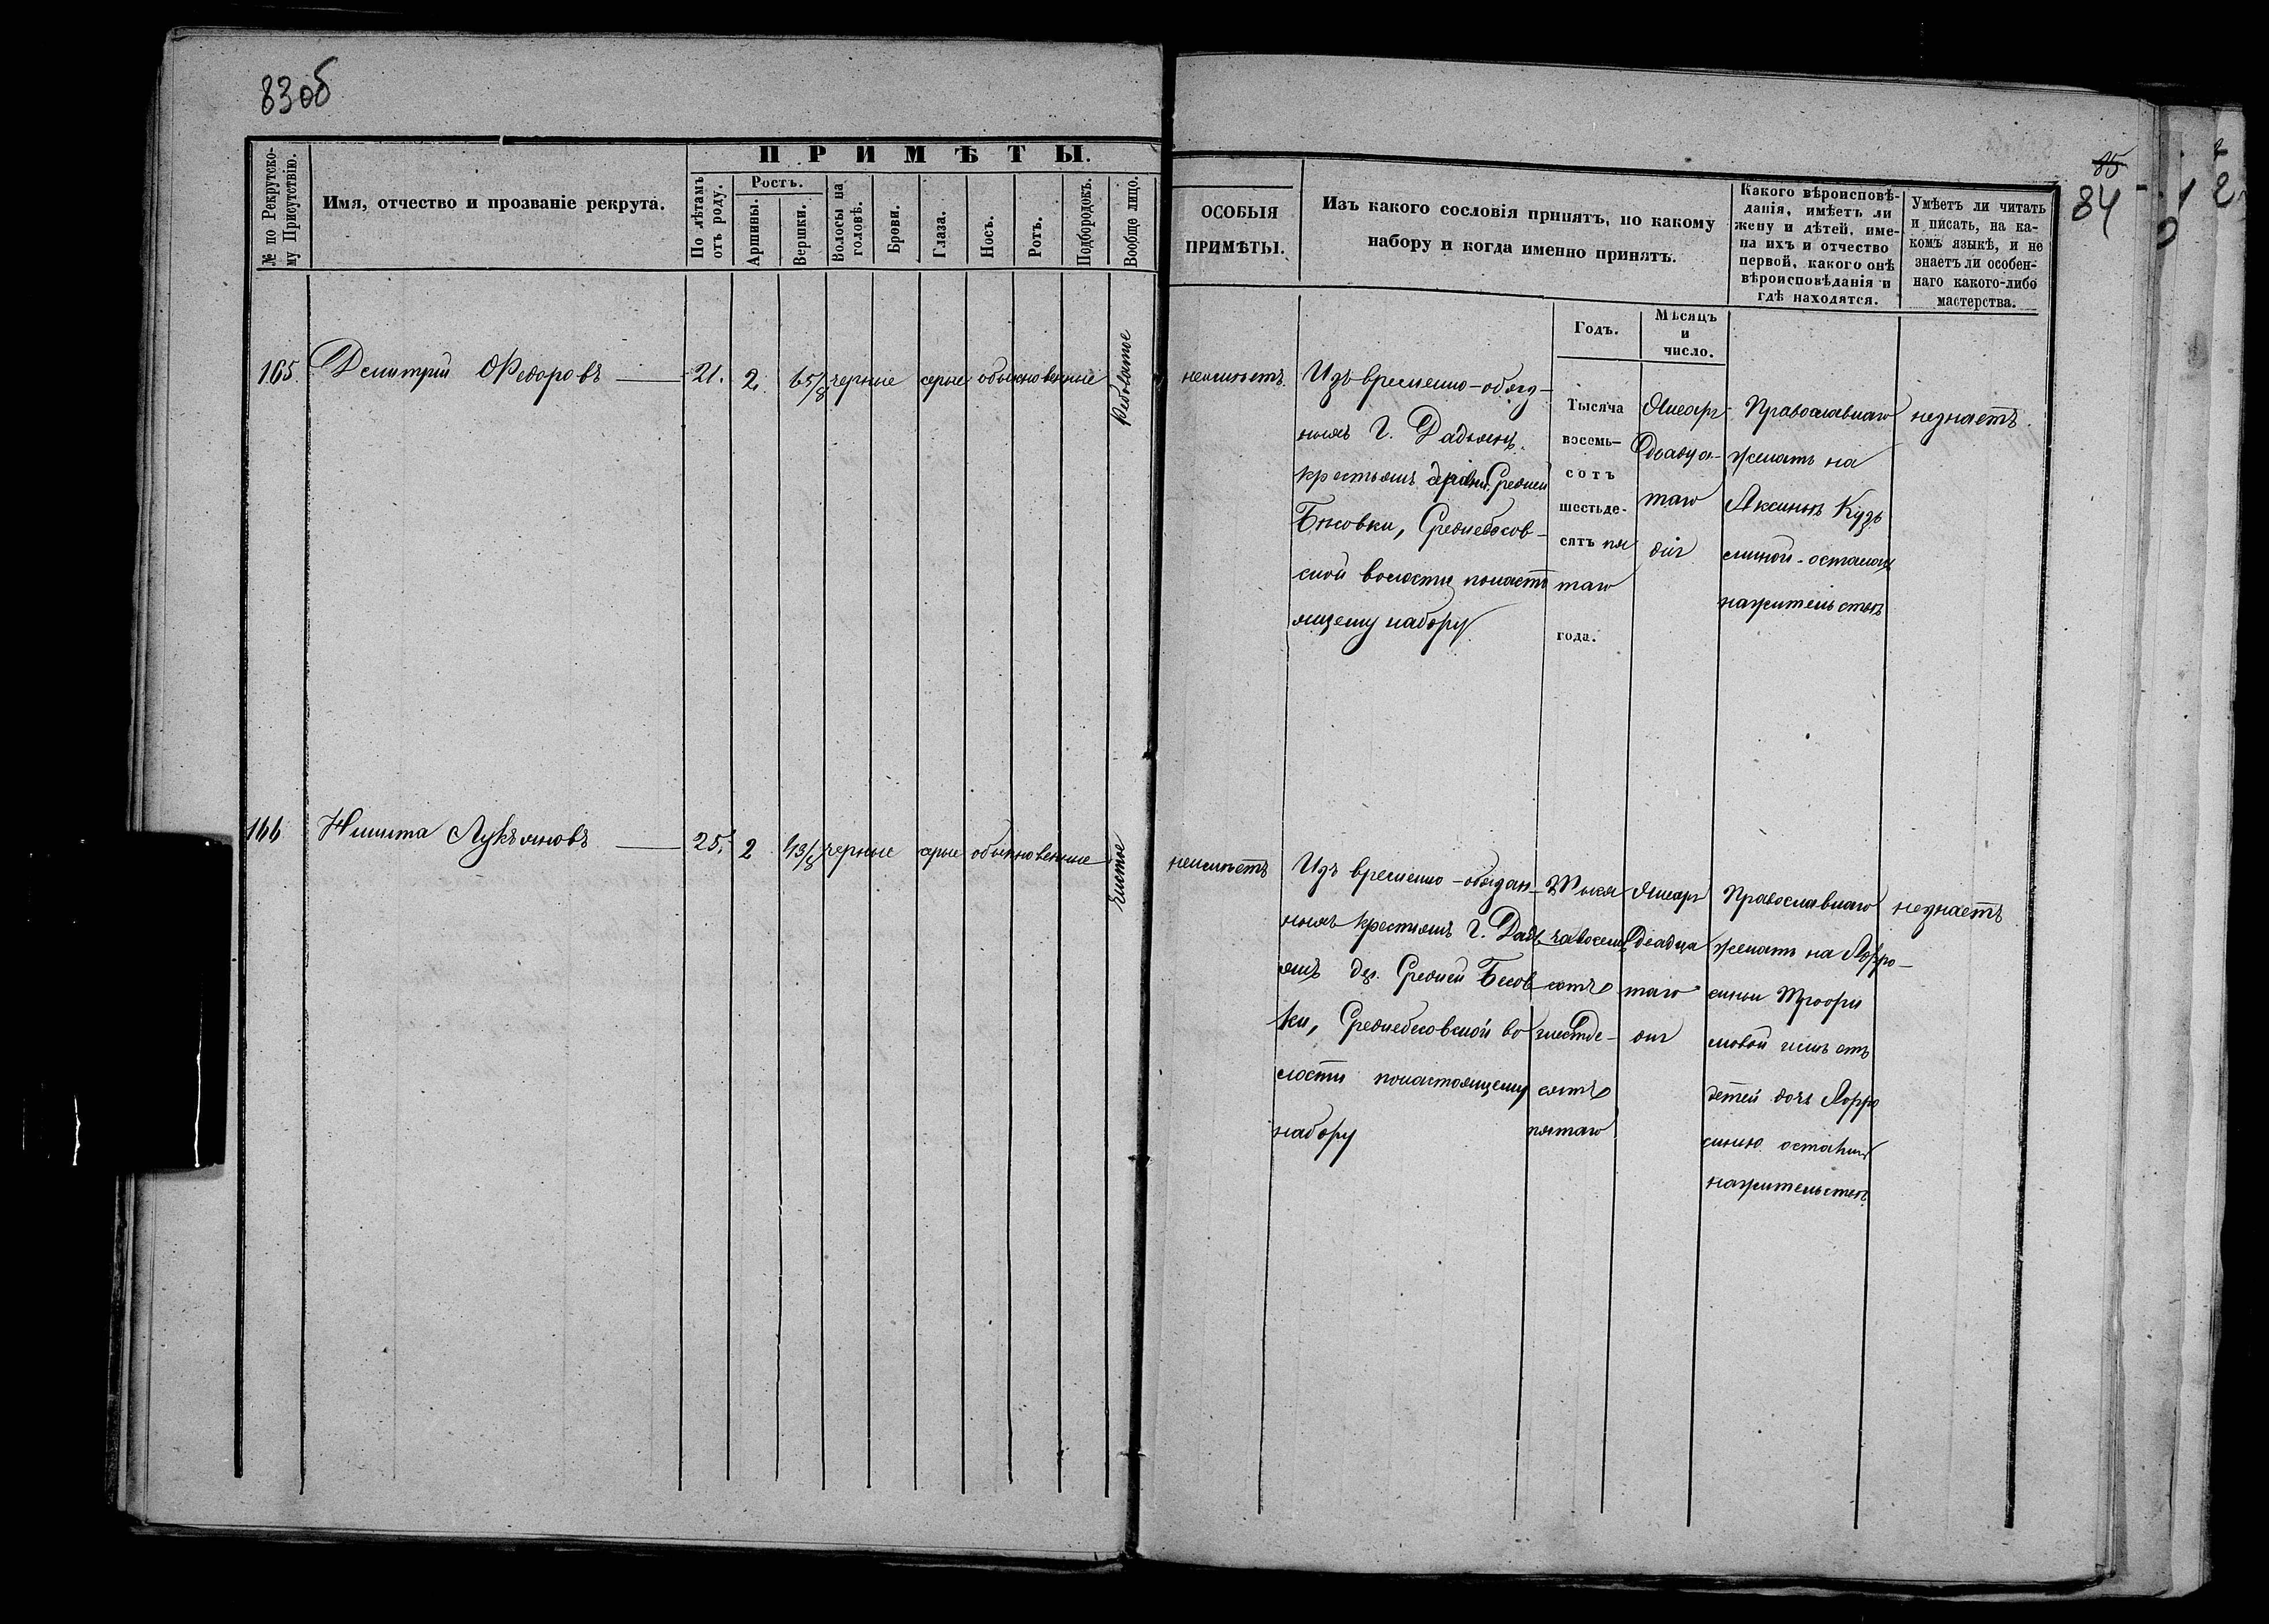 83об
85
84
ПРИМѢТЫ.
№ по Рекрутско-
му Присутствію.
Имя, отчество и прозваніе рекрута.
По лѣтамъ
отъ роду.
Ростъ.
Аршины.
Вершки.
Волосы на
головѣ.
Брови.
Глаза.
Носъ.
Ротъ.
Подбородокъ.
Вообще лицо.
ОСОБЫЯ
ПРИМѢТЫ.
Изъ какого сословія принятъ, по какому
набору и когда именно принятъ.
Какого вѣроисповѣ-
данія, имѣетъ ли
жену и дѣтей, име-
на ихъ и отчество
первой, какого онѣ
вѣроисповѣданія и
гдѣ находятся.
Умѣетъ ли читать
и писать, на ка-
комъ языкѣ, и не
знаетъ ли особен-
наго какого-либо
мастерства.
Годъ.
Мѣсяцъ
и
число.
165.
Дмитрій Ѳедоровъ
21.
2.
6 5/8
черные
серые
обыкновенные
Рябоватое
неимѣетъ.
Изъ временно-обяз-
ныхъ Г. Дадьянъ
крестьянъ деревни Средней
Бѣсовки, Среднебѣсов-
ской волости понасто
ящему набору
Тысяча
восемь-
сотъ
шестьде-
сятъ пя
таго
года.
Январ
Двадца-
таго
дня
Православнаго
женатъ на
Аксиньѣ Кузь
миной-осталась
нажительствѣ
незнаетъ.
166
Никита Лукъяновъ
25.
2
4 3/8
черные
серые
обыкновенные
Чистое
неимѣетъ
Изъ временно-обязан-
ныхъ крестьянъ Г. Дадь
янъ де. Средней Бесов
ки, Среднебесовской во
лости понастоящему
набору
Тыся
чавосемь
сотъ
шестьде-
сятъ
пятаго
Январ
Двадца
таго
дня
Православнаго
женатъ на Афро-
синьи Трофи
мовой имѣетъ
детей дочь Афро
синью остались
нажительствѣ
незнаетъ